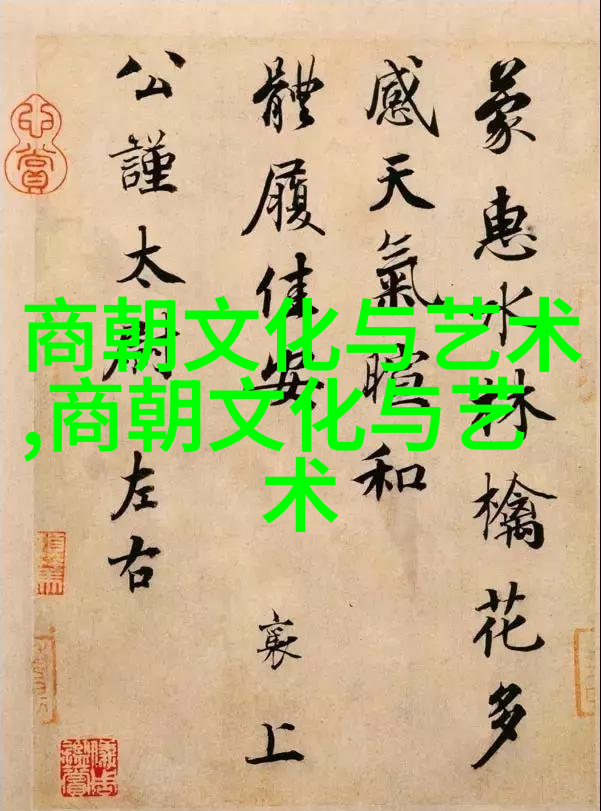 商朝文化与艺术
,商朝文化与艺
术
蒙惠水林檎花多
感天氣暄和
體履佳安
襄上
公謹太尉左右